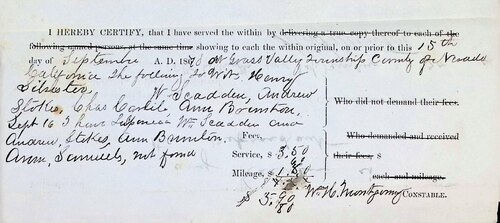 I HEREBY CERTIFY, that I have served the within by delivering a true copy thereof to each of the
following named persons, at the same time showing to each the within original, on or prior to this 15th
day of Septembre A. D. 187 at Grass Valley Township County of Nevada
California the folling to Wit Henry
Silvester, W. Scadden, Andrew
Stokes, Chas Ann Brunton,
Sept 16 I have Wm Scadden and
Andrew Stokes, Ann Brunton,
Ann, Samuels, not fond
Who did not demand their fees.
Who demanded and received
their fees, $ each and mileage.
Fees,
Service, $ 3.50
Mileage, $
$ 5.
Wm H. Montgomery CONSTABLE.